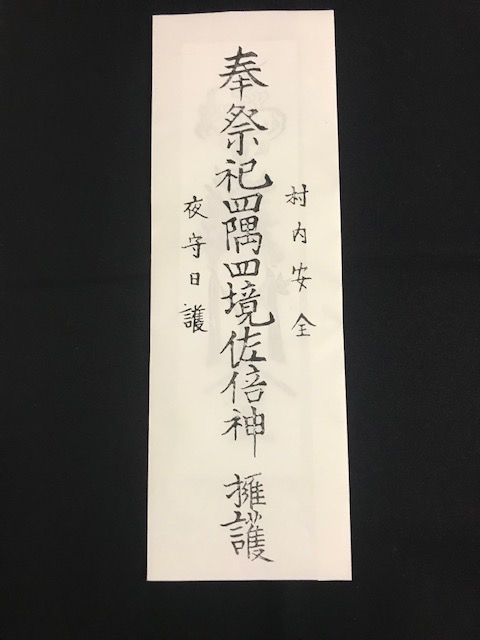 村内安全
奉祭祀四隅四境佐倍神 擁護
夜守日護